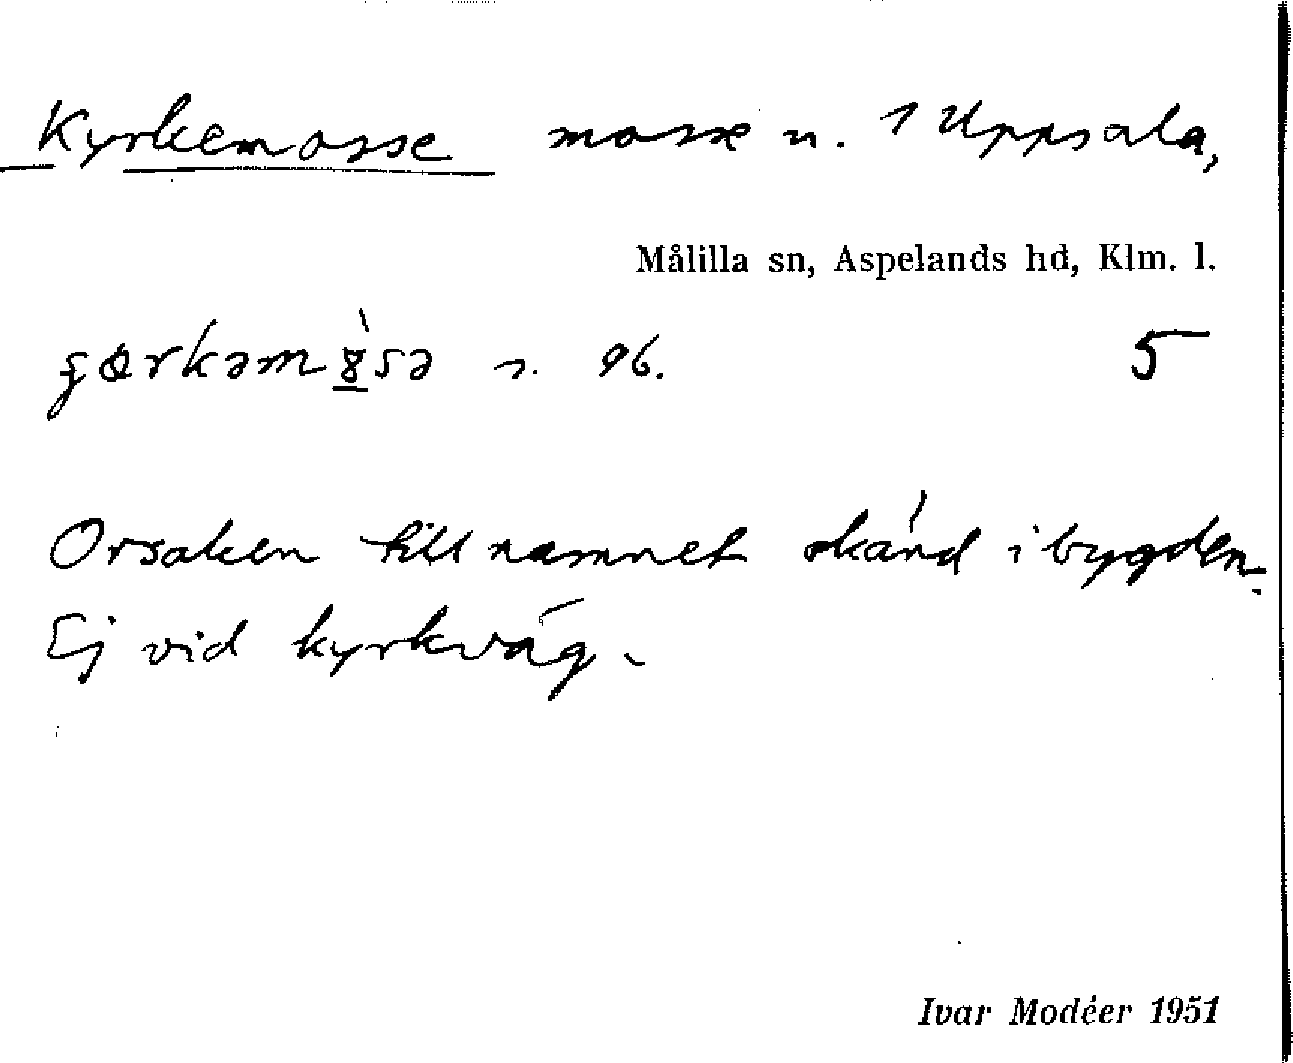 Kyrkemosse mosse n. 1 Uppsala,
Målilla sn, Aspelands hd, Klm. l.
n. 96. 5
Orsaken till namnet okänd i bygden.
Ej vid kyrkväg.
Ivar Modéer 1951